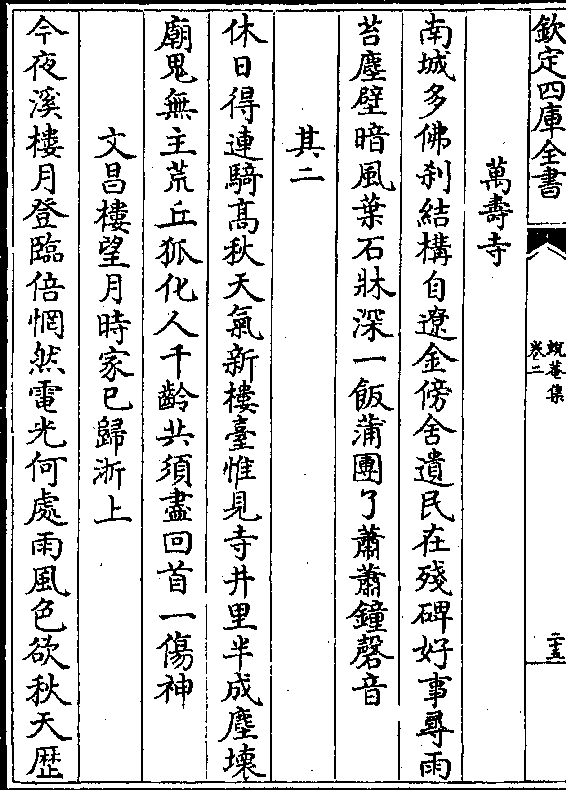 欽定四庫全書
蛻菴集
卷二
二十五
萬壽寺
南城多佛刹結構自遼金傍舍遺民在殘碑好事尋雨
苔塵壁暗風葉石牀深一飯蒲團了蕭蕭鐘磬音
其二
休日得連騎高秋天氣新樓臺惟見寺井里半成塵壊
廟鬼無主荒丘狐化人千齡共須盡回首一傷神
文昌樓望月時家已歸淅上
今夜溪樓月登臨倍惘然電光何處雨風色欲秋天歴